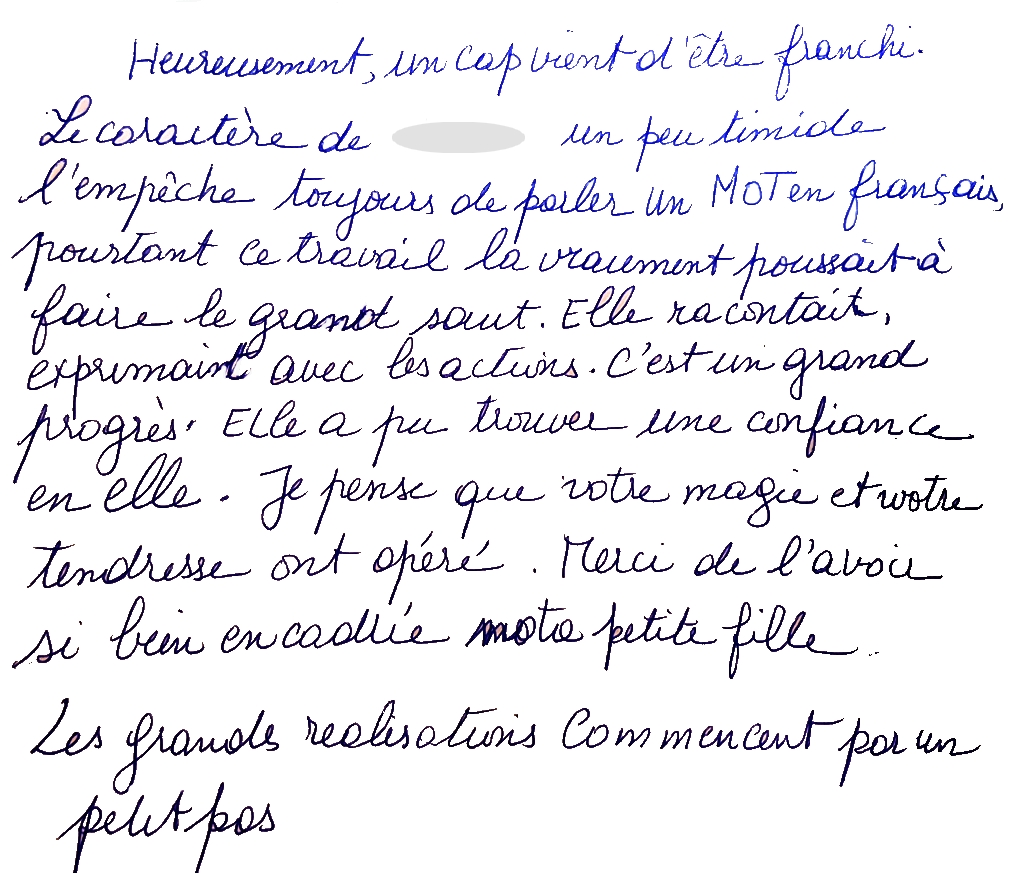 Heureusement, un cap vient d'être franchi.
Le caractère de un peu timide
l'empêche toujours de parler un MOT en français,
pourtant ce travail la vraiement poussait à
faire le grand saut. Elle racontait,
exprimaint avec les actions. C'est un grand
progrès. Elle a pu trouver une confiance
en elle. Je pense que votre magie et votre
tendresse ont opéré. Merci de l'avoir
si bien encadrée petite fille.
Les grands realisations Commencent par un
petit pas